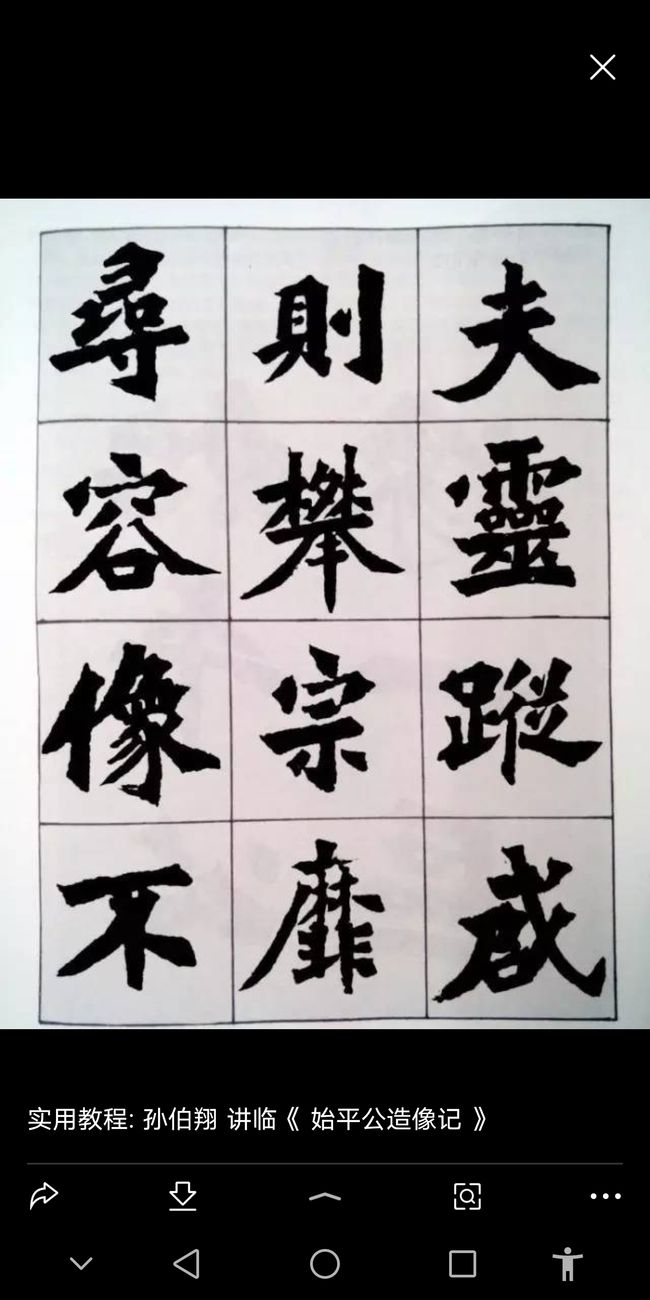 夫靈蹤咸
則攀宗靡
尋容像不
实用教程: 孙伯翔 讲临《 始平公造像记 》